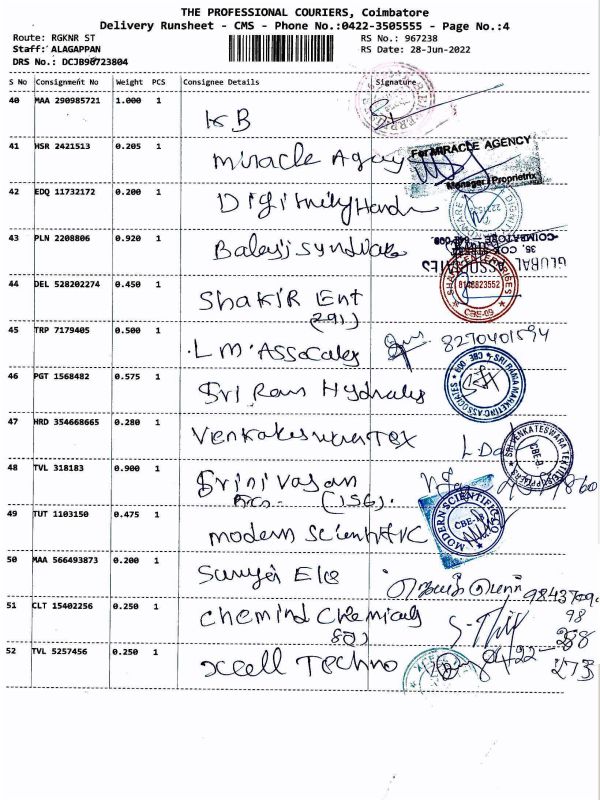 THE PROFESSIONAL COURIERS, Coimbatore
Delivery Runsheet - CMS - Phone No.:0422-3505555 - Page No.:4
Route: RGKNR ST
RS No.: 967238
Staff: ALAGAPPAN
RS Date: 28-Jun-2022
DRS No.: DCJB90723804
S No Consignment No Weight PCS Consignee Details Signature
40 MAA 290985721 1.000 1 KB
41 HSR 2421513 0.205 1 Miracle Agency
For MIRACLE AGENCY
Manager / Proprietrix
42 EDQ 11732172 0.200 1
43 PLN 2208806 0.920 1 Balaji Syndicate
COIMBATORE
GLOBAL ASSOCIATES
44 DEL 528202274 0.450 1 Shakir Ent
(291)
8148823552
CBE-09
45 TRP 7179405 0.500 1 L M Associates 8270401594
46 PGT 1568482 0.575 1 Sri Ram Hydraulics
SRI RAMA MARKETING ASSOCIATES CBE 009
47 HRD 354668665 0.280 1 Venkateswara Tex
SRI VENKATESWARA
48 TVL 318183 0.900 1 Srinivasan
Bros - (156).
49 TUT 1103150 0.475 1 modern Scientific
MODERN SCIENTIFIC CO
50 MAA 566493873 0.200 1
51 CLT 15402256 0.250 1 chemind chemicals
52 TVL 5257456 0.250 1 Xcell Techno